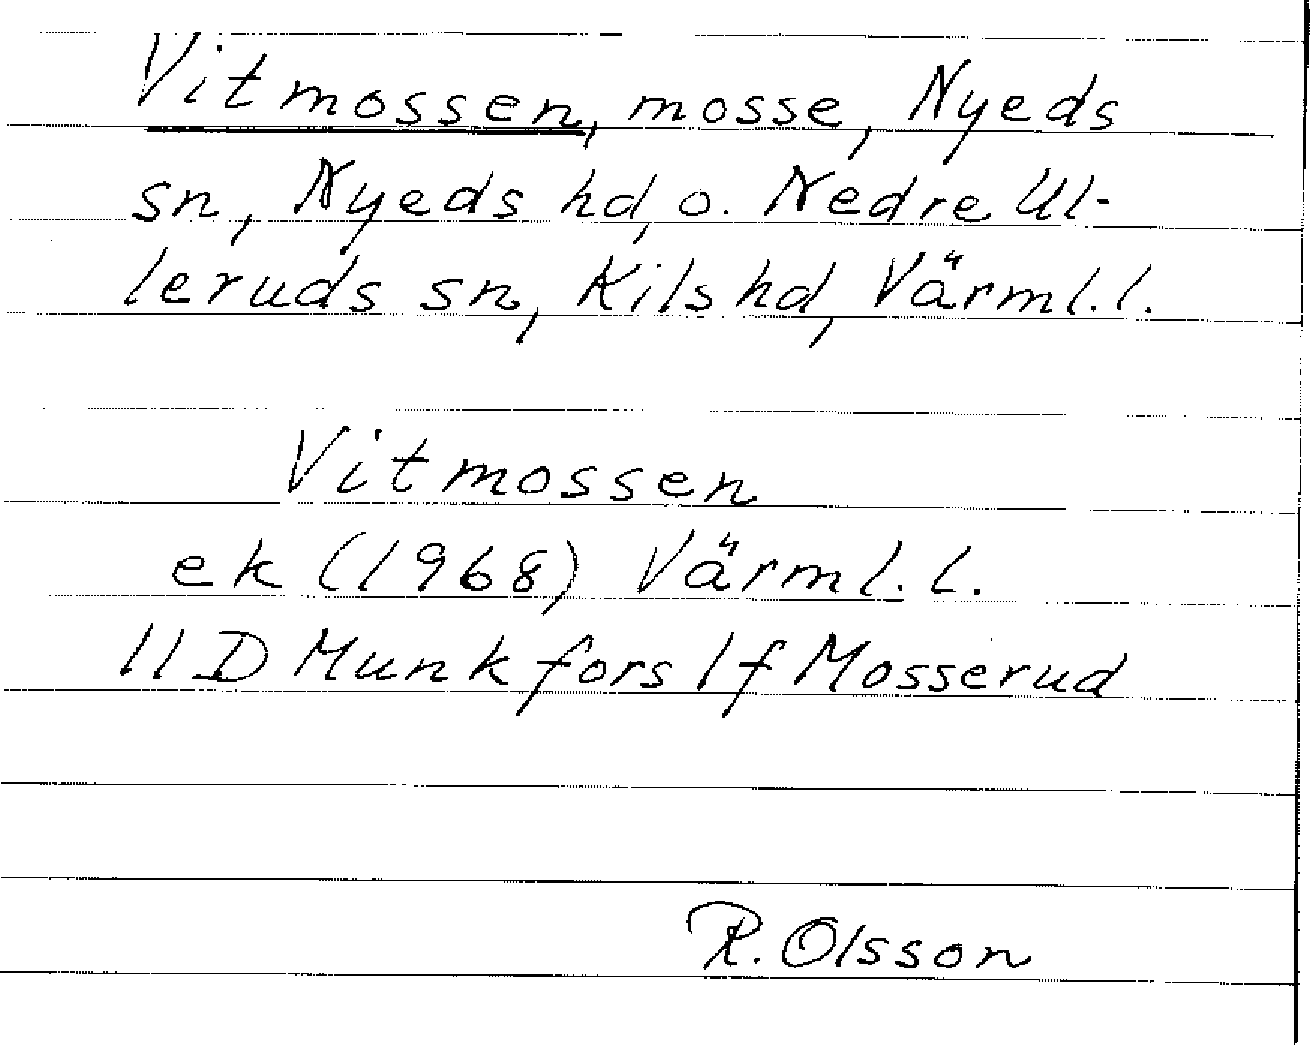 Vitmossen, mosse, Nyeds
sn, Nyeds hd, o. Nedre Ul-
leruds sn, Kils hd, Värml. l.
Vitmossen
ek (1968) Värml. l.
11D Munkfors 1f Mosserud
R. Olsson